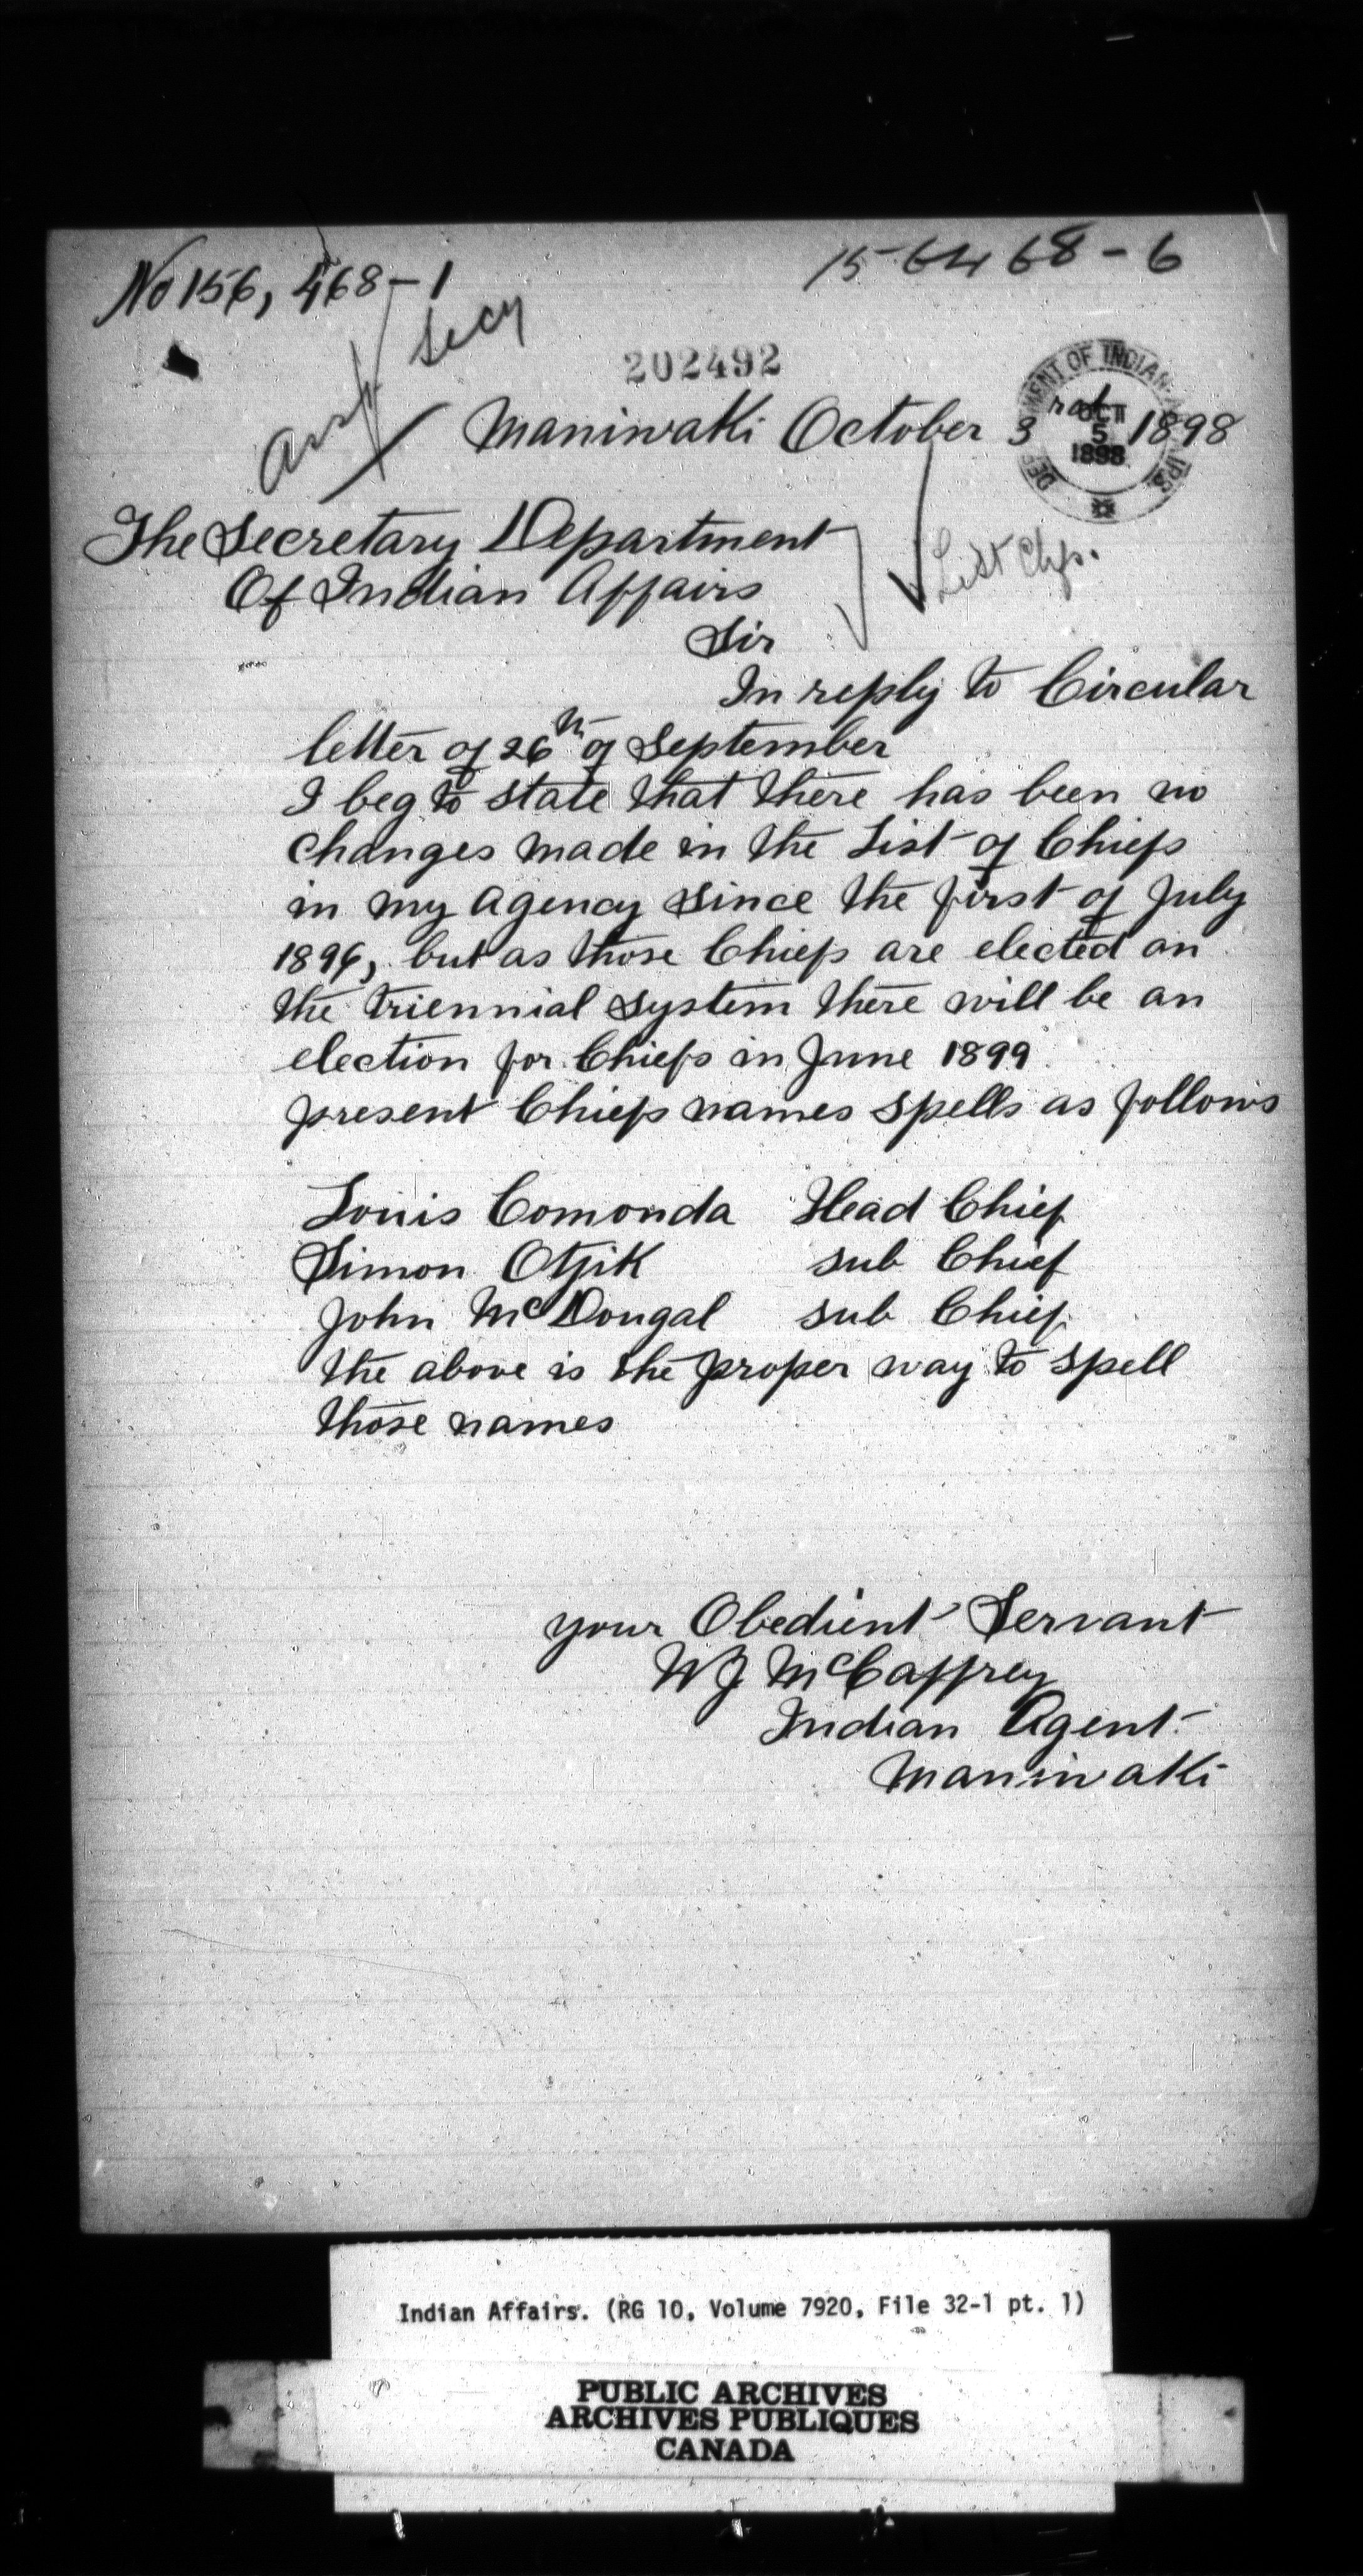 No 156, 468-1
156468-6
Secy
202492
Maniwaki October 3 1898
DEPARTMENT OF INDIAN AFFAIRS
OCT
5
1898
The Secretary Department
Of Indian Affairs
List Chfs.
Sir
In reply to Circular
letter of 26th of September
I beg to state that there has been no
changes made in the List of Chiefs
in my agency since the first of July
1896, but as those Chiefs are elected on
the triennial system there will be an
election for Chiefs in June 1899
present Chiefs names spells as follows
Louis Comonda Head Chief
Simon Otjik sub Chief
John McDougal sub Chief
the above is the proper way to spell
those names
your Obedient Servant
WJ McCaffrey
Indian Agent
Maniwaki
Indian Affairs. (RG 10, Volume 7920, File 32-1 pt. 1)
PUBLIC ARCHIVES
ARCHIVES PUBLIQUES
CANADA